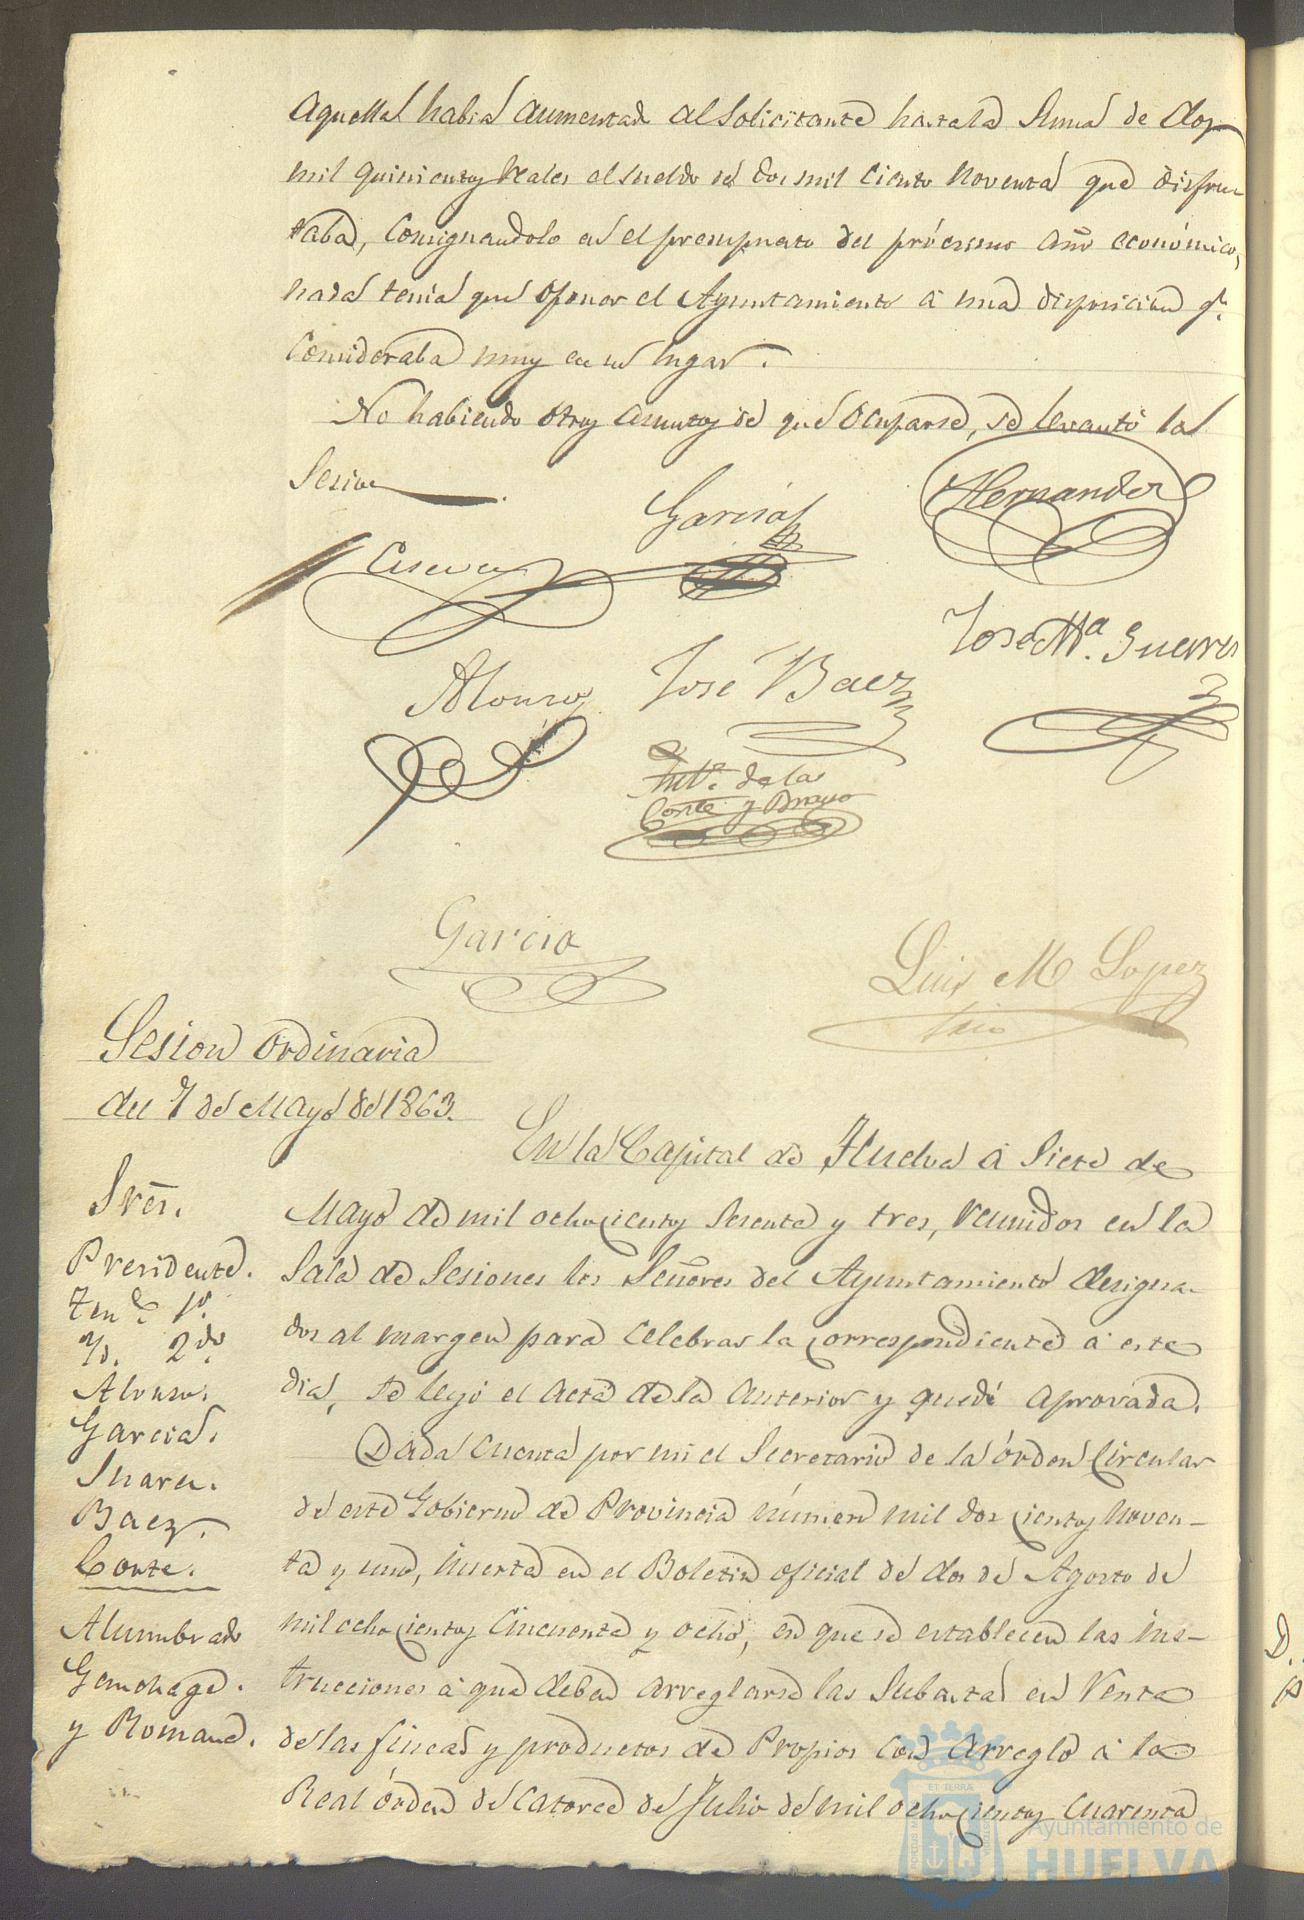 Aquella había aumentado al Solicitante hasta la Suma de dos
mil quinientos reales el sueldo de dos mil ciento noventa que disfru
taba, Consignandolo en el presupuesto del prócsimo año económico,
nada tenía que oponer el Ayuntamiento á una disposicion qe.
Consideraba muy en su lugar.
No habiendo otros asuntos de que Ocuparse, se levantó la
Sesion.
Hernandez
García
Cueva
José Ma. Guerrero
Alonso
José Baez
Anto. de la
Corte y Bravo
Garcia
Luis M Lopez
Srio
Sesion Ordinaria
del 7 de Mayo de 1863.
En la Capital de Huelva á Siete de
Mayo de mil ochocientos Sesenta y tres, reunidos en la
Sala de Sesiones los Señores del Ayuntamiento designa-
dos al margen para celebrar la correspondiente á este
dia, se leyó el acta de la anterior y quedó aprovada.
Dada cuenta por mi el Secretario de la órden Circular
de este Gobierno de Provincia número mil dos cientos noven-
ta y uno, inserta en el Boletin oficial de dos de Agosto de
mil ochocientos Cincuenta y ocho, en que se establecen las ins-
trucciones á que deben arreglarse las Subastas en Venta
de las fincas y productos de Propios con arreglo á la
Real órden de catorce de Julio de mil ochocientos cuarenta
Sres.
Presidente.
Tene. 1o.
Yd. 2do.
Alonso.
García.
Suarez.
Baez.
Corte.
Alumbrado
Gemohage.
y Romano.
D.
ET TERRÆ
Ayuntamiento de
HUELVA